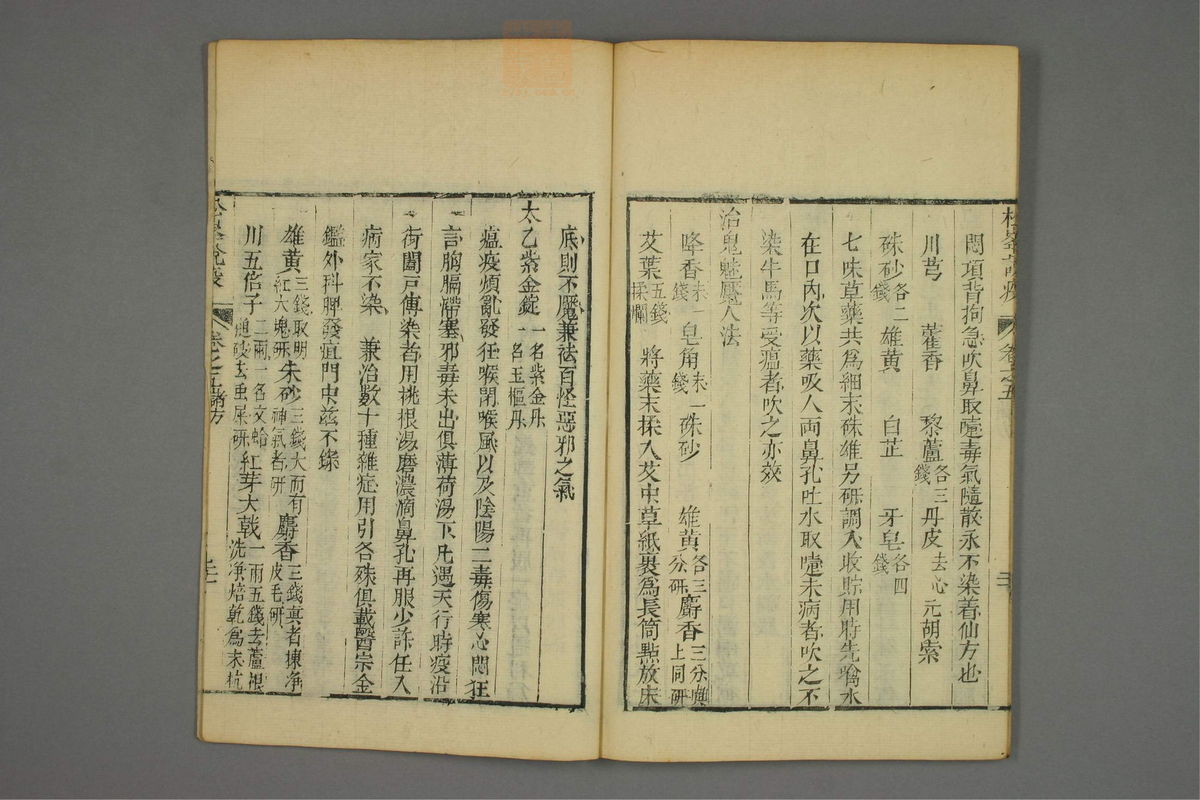 悶項背拘急吹鼻取嚏毒氣隨散永不染着仙方也
川芎　藿香　藜蘆各三錢丹皮去心元胡索
硃砂各二錢雄黃　白芷　牙皂各四錢
七味草藥共為細末硃雄另研調入收貯用時先噙水
在口內次以藥吸入両鼻孔吐水取嚏未病者吹之不
染牛馬等受瘟者吹之亦效
治鬼魅魘人法
絳香末一錢皂角末一錢硃砂　雄黃各三分研麝香三分與上同研
艾葉五錢揉爛　將藥末揉入艾中草紙裹為長筒點放床
底則不魘兼祛百怪惡邪之氣
太乙紫金錠一名紫金丹一名玉樞丹
瘟疫煩亂發狂喉閉喉風以及陰陽二毒傷寒心悶狂
言胸膈滯塞邪毒未出俱薄荷湯下凡遇天行時疫沿
街闔戸傳染者用桃根湯磨濃滴鼻孔再服少許任入
病家不染　兼治數十種雜症用引各殊俱載醫宗金
鑑外科脾發疽門中茲不錄
雄黃三錢取明紅大塊研朱砂三錢大而有神氣者研麝香三錢真者揀淨皮毛研
川五倍子二兩一名文蛤搥破去虫屎研紅芽大戟一兩五錢去蘆根洗淨焙乾為末杭
卷之五諸方